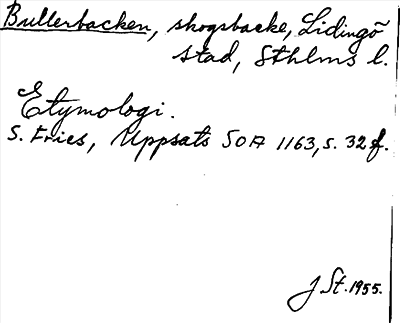 Bullerbacken, skogsbacke, Lidingö
stad, Sthlms l.
Etymologi.
S. Fries, Uppsats SOA 1163, s. 32 f.
J St. 1955.